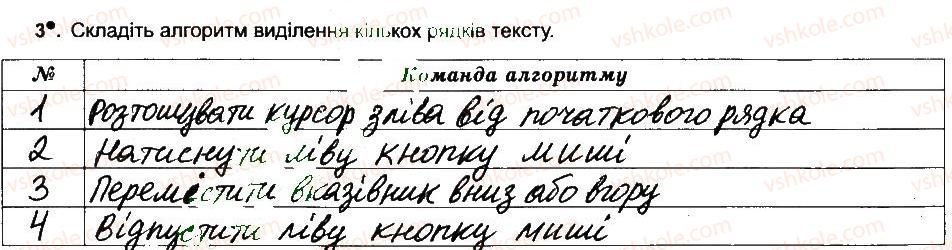 3•. Складіть алгоритм виділення кількох рядків тексту.
№ Команда алгоритму
1 Розтошувати курсор зліва від початкового рядка
2 Натиснути ліву кнопку миші
3 Перемістити вказівник вниз або вгору
4 Відпустити ліву кнопку миші